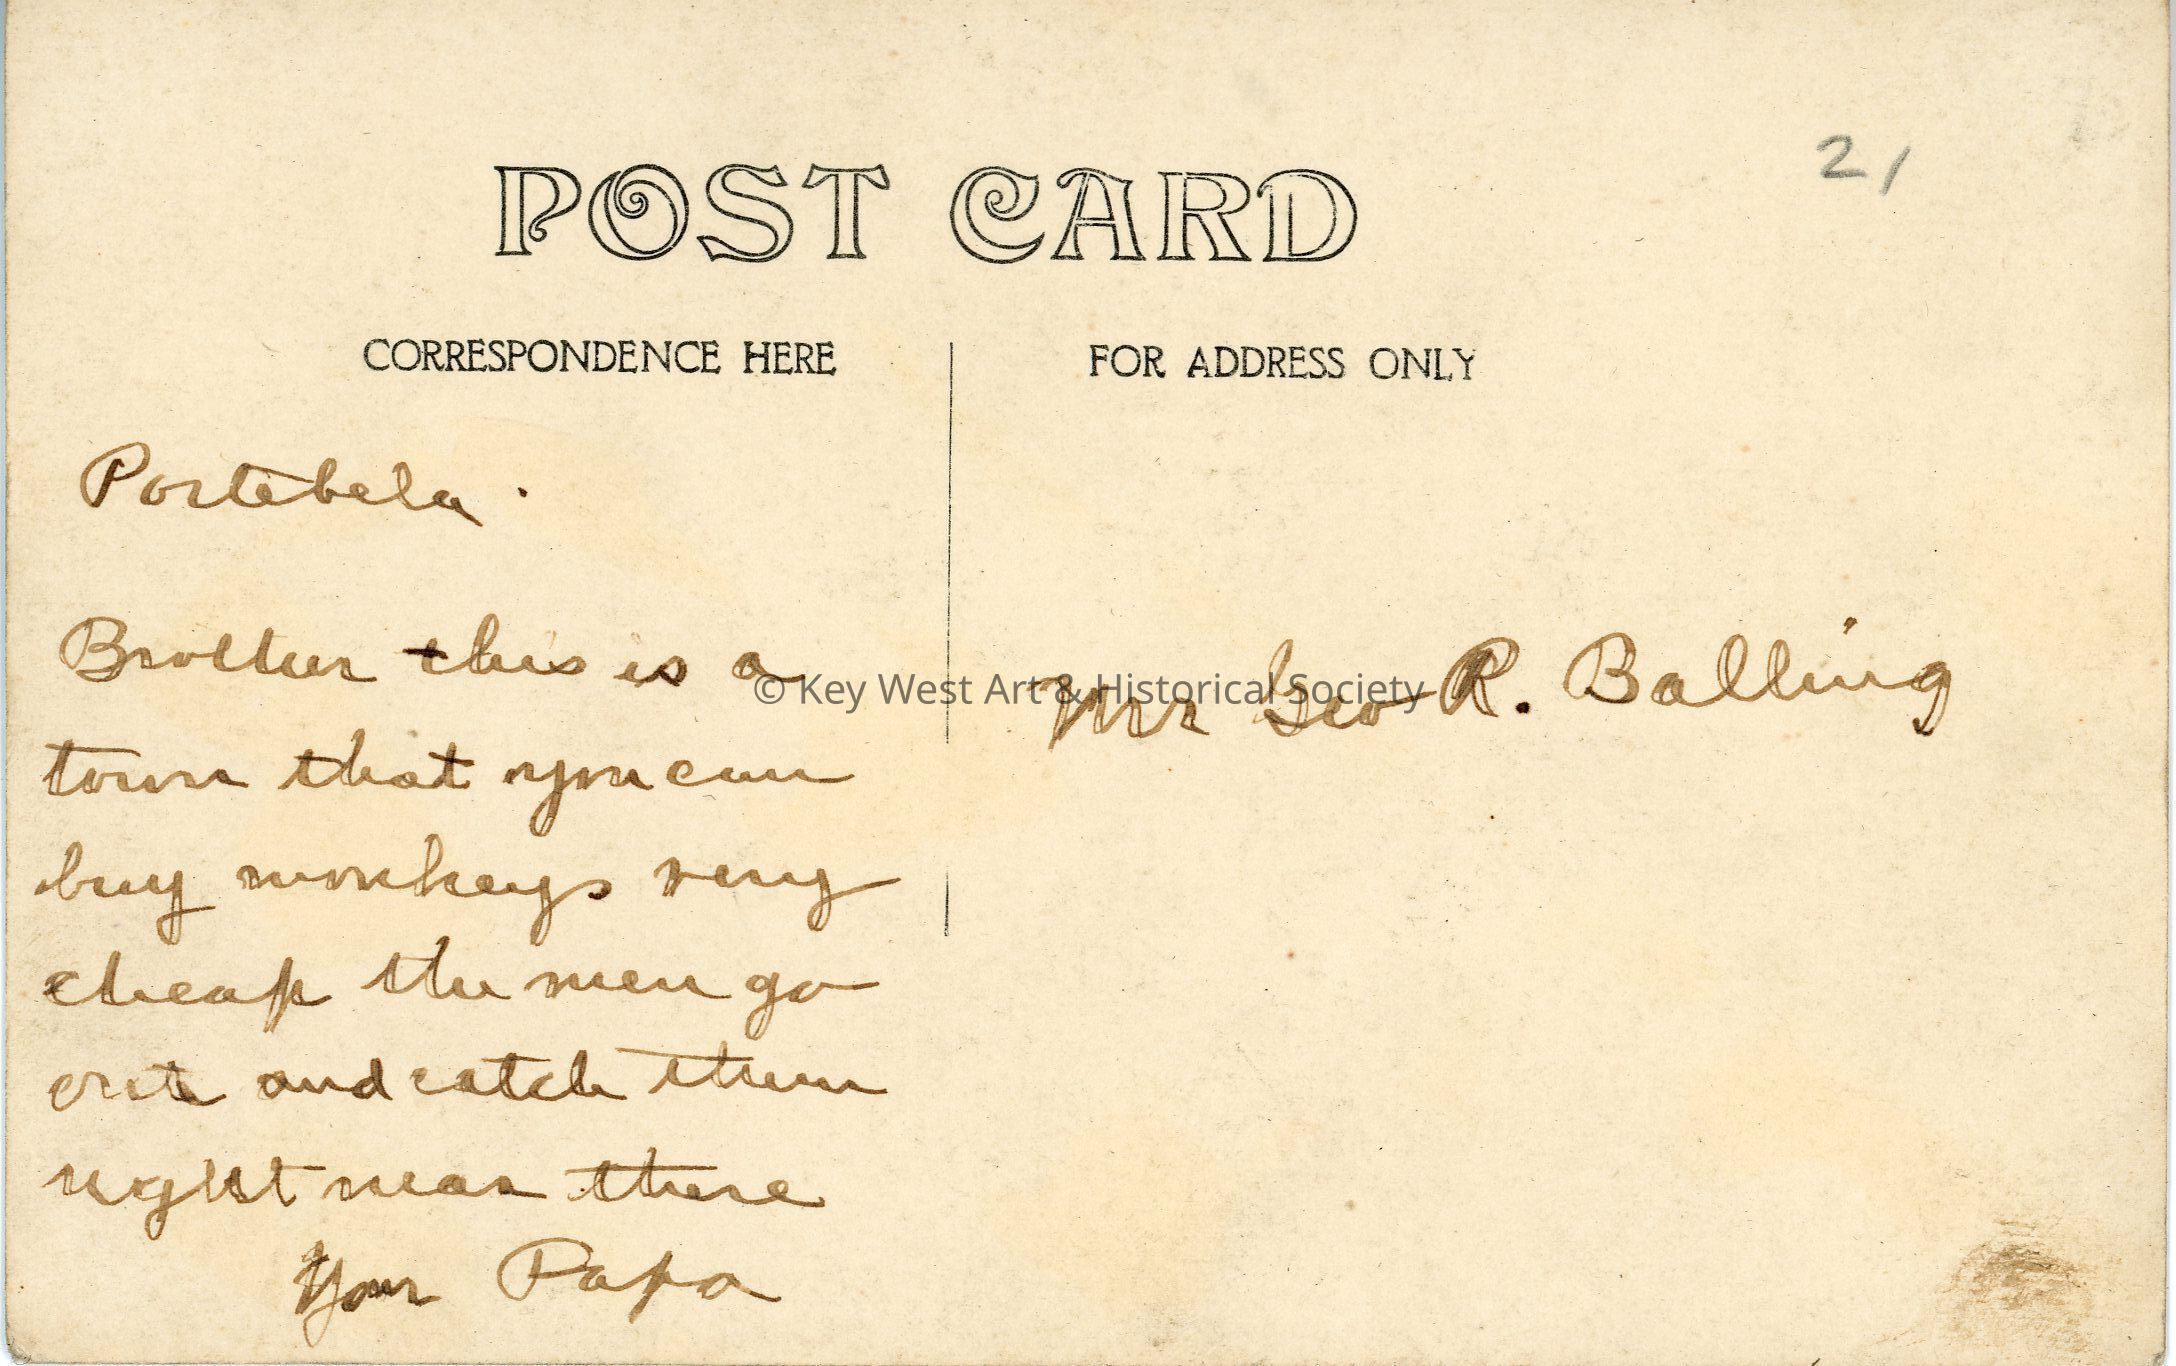 21
POST CARD
CORRESPONDENCE HERE
FOR ADDRESS ONLY
Portebela.
Brother this is a
town that you can
buy monkeys very
cheap the men go
out and catch them
right near there
Your Papa
Mr Geo R. Balling
© Key West Art & Historical Society